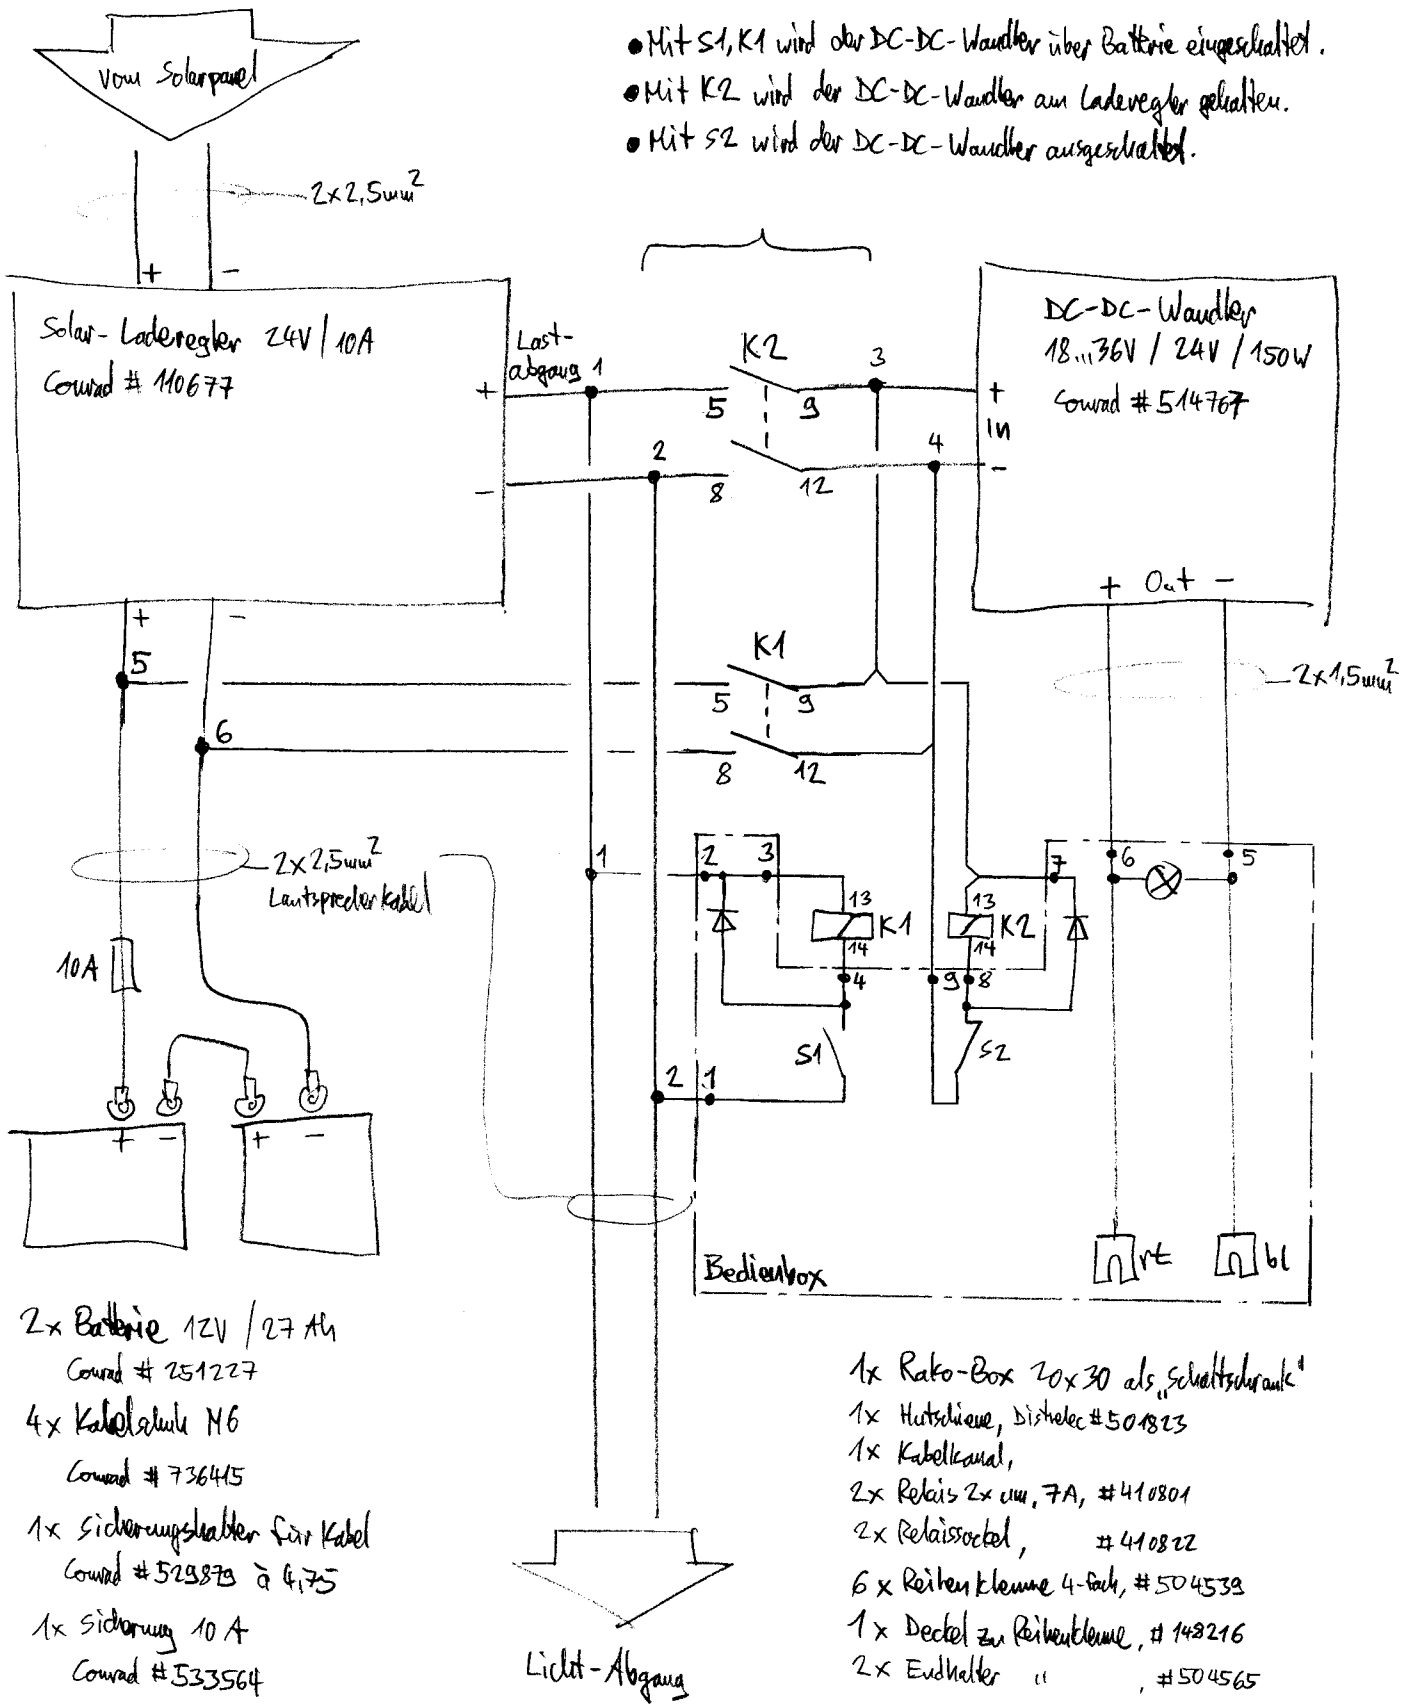 vom Solarpanel
● Mit S1, K1 wird der DC-DC-Wandler über Batterie eingeschaltet.
● Mit K2 wird der DC-DC-Wandler am Laderegler gehalten.
● Mit S2 wird der DC-DC-Wandler ausgeschaltet.
2x2,5mm²
+ -
Solar-Laderegler 24V/10A
Conrad # 110677
Last-
abgang
+
-
1
2
K2
5 9
8 12
3
4
DC-DC-Wandler
18...36V / 24V / 150W
Conrad # 514767
+
In
-
+ Out -
+ -
5
6
K1
5 9
8 12
2x1,5mm²
2x2,5mm²
Lautsprecherkabel
10A
1
2 3
13
K1
14
4
13
K2
14
9 8
7
6 5
S1
S2
2 1
+ - + -
Bedienbox
rt bl
2x Batterie 12V / 27 Ah
Conrad # 251227
4x Kabelschuh M6
Conrad # 736415
1x Sicherungshalter für Kabel
Conrad # 529879 à 4,75
1x Sicherung 10 A
Conrad # 533564
Licht-Abgang
1x Rako-Box 20x30 als „Schaltschrank"
1x Hutschiene, Distrelec # 501823
1x Kabelkanal,
2x Relais 2x um, 7A, # 410801
2x Relaissockel, # 410822
6x Reihenklemme 4-fach, # 504539
1x Deckel zu Reihenklemme, # 148216
2x Endhalter " , # 504565